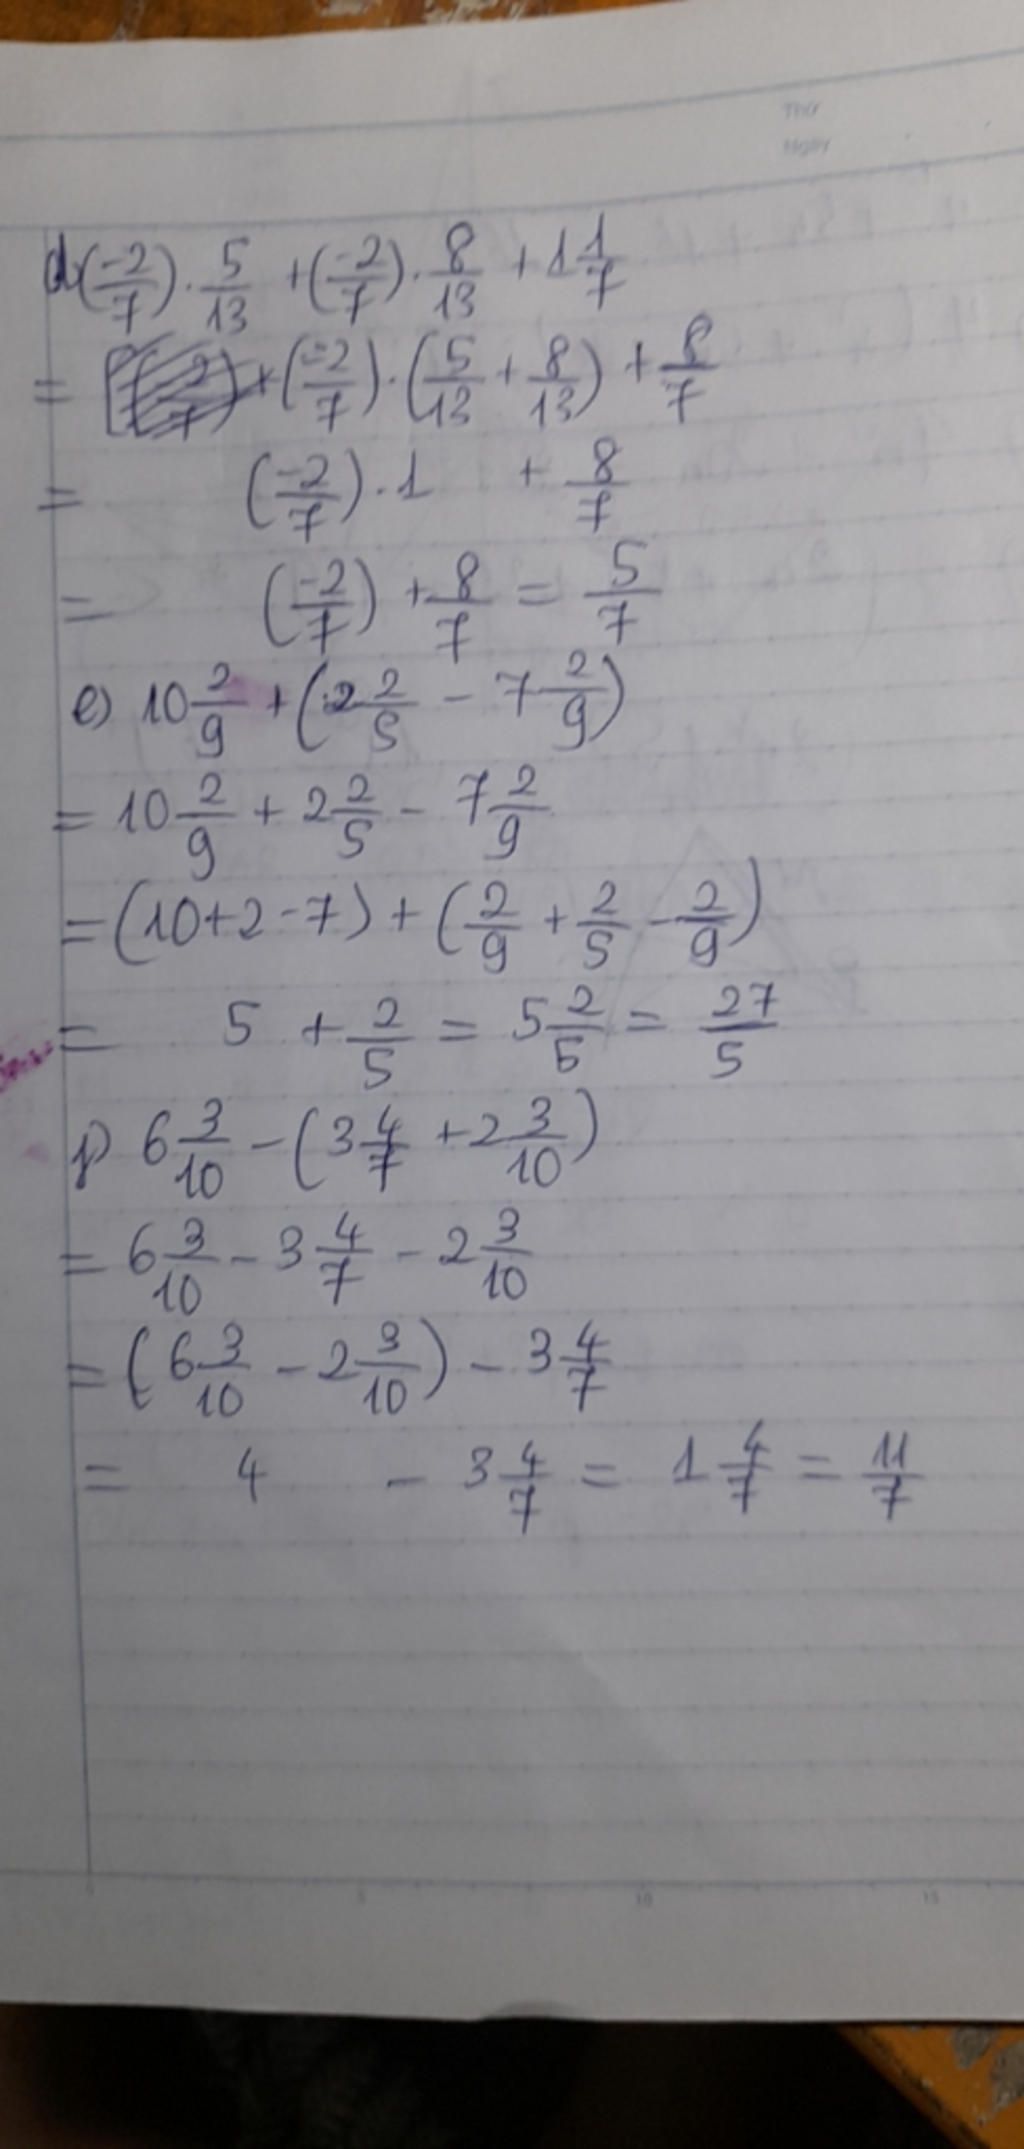 Thứ
Ngày
d) (-2/7) . 5/13 + (-2/7) . 8/13 + 1 1/7
= (-2/7) . (5/13 + 8/13) + 8/7
= (-2/7) . 1 + 8/7
= (-2/7) + 8/7 = 5/7
e) 10 2/9 + (2 2/5 - 7 2/9)
= 10 2/9 + 2 2/5 - 7 2/9
= (10+2-7) + (2/9 + 2/5 - 2/9)
= 5 + 2/5 = 5 2/5 = 27/5
f) 6 3/10 - (3 4/7 + 2 3/10)
= 6 3/10 - 3 4/7 - 2 3/10
= (6 3/10 - 2 3/10) - 3 4/7
= 4 - 3 4/7 = 1 4/7 = 11/7
5 10 15